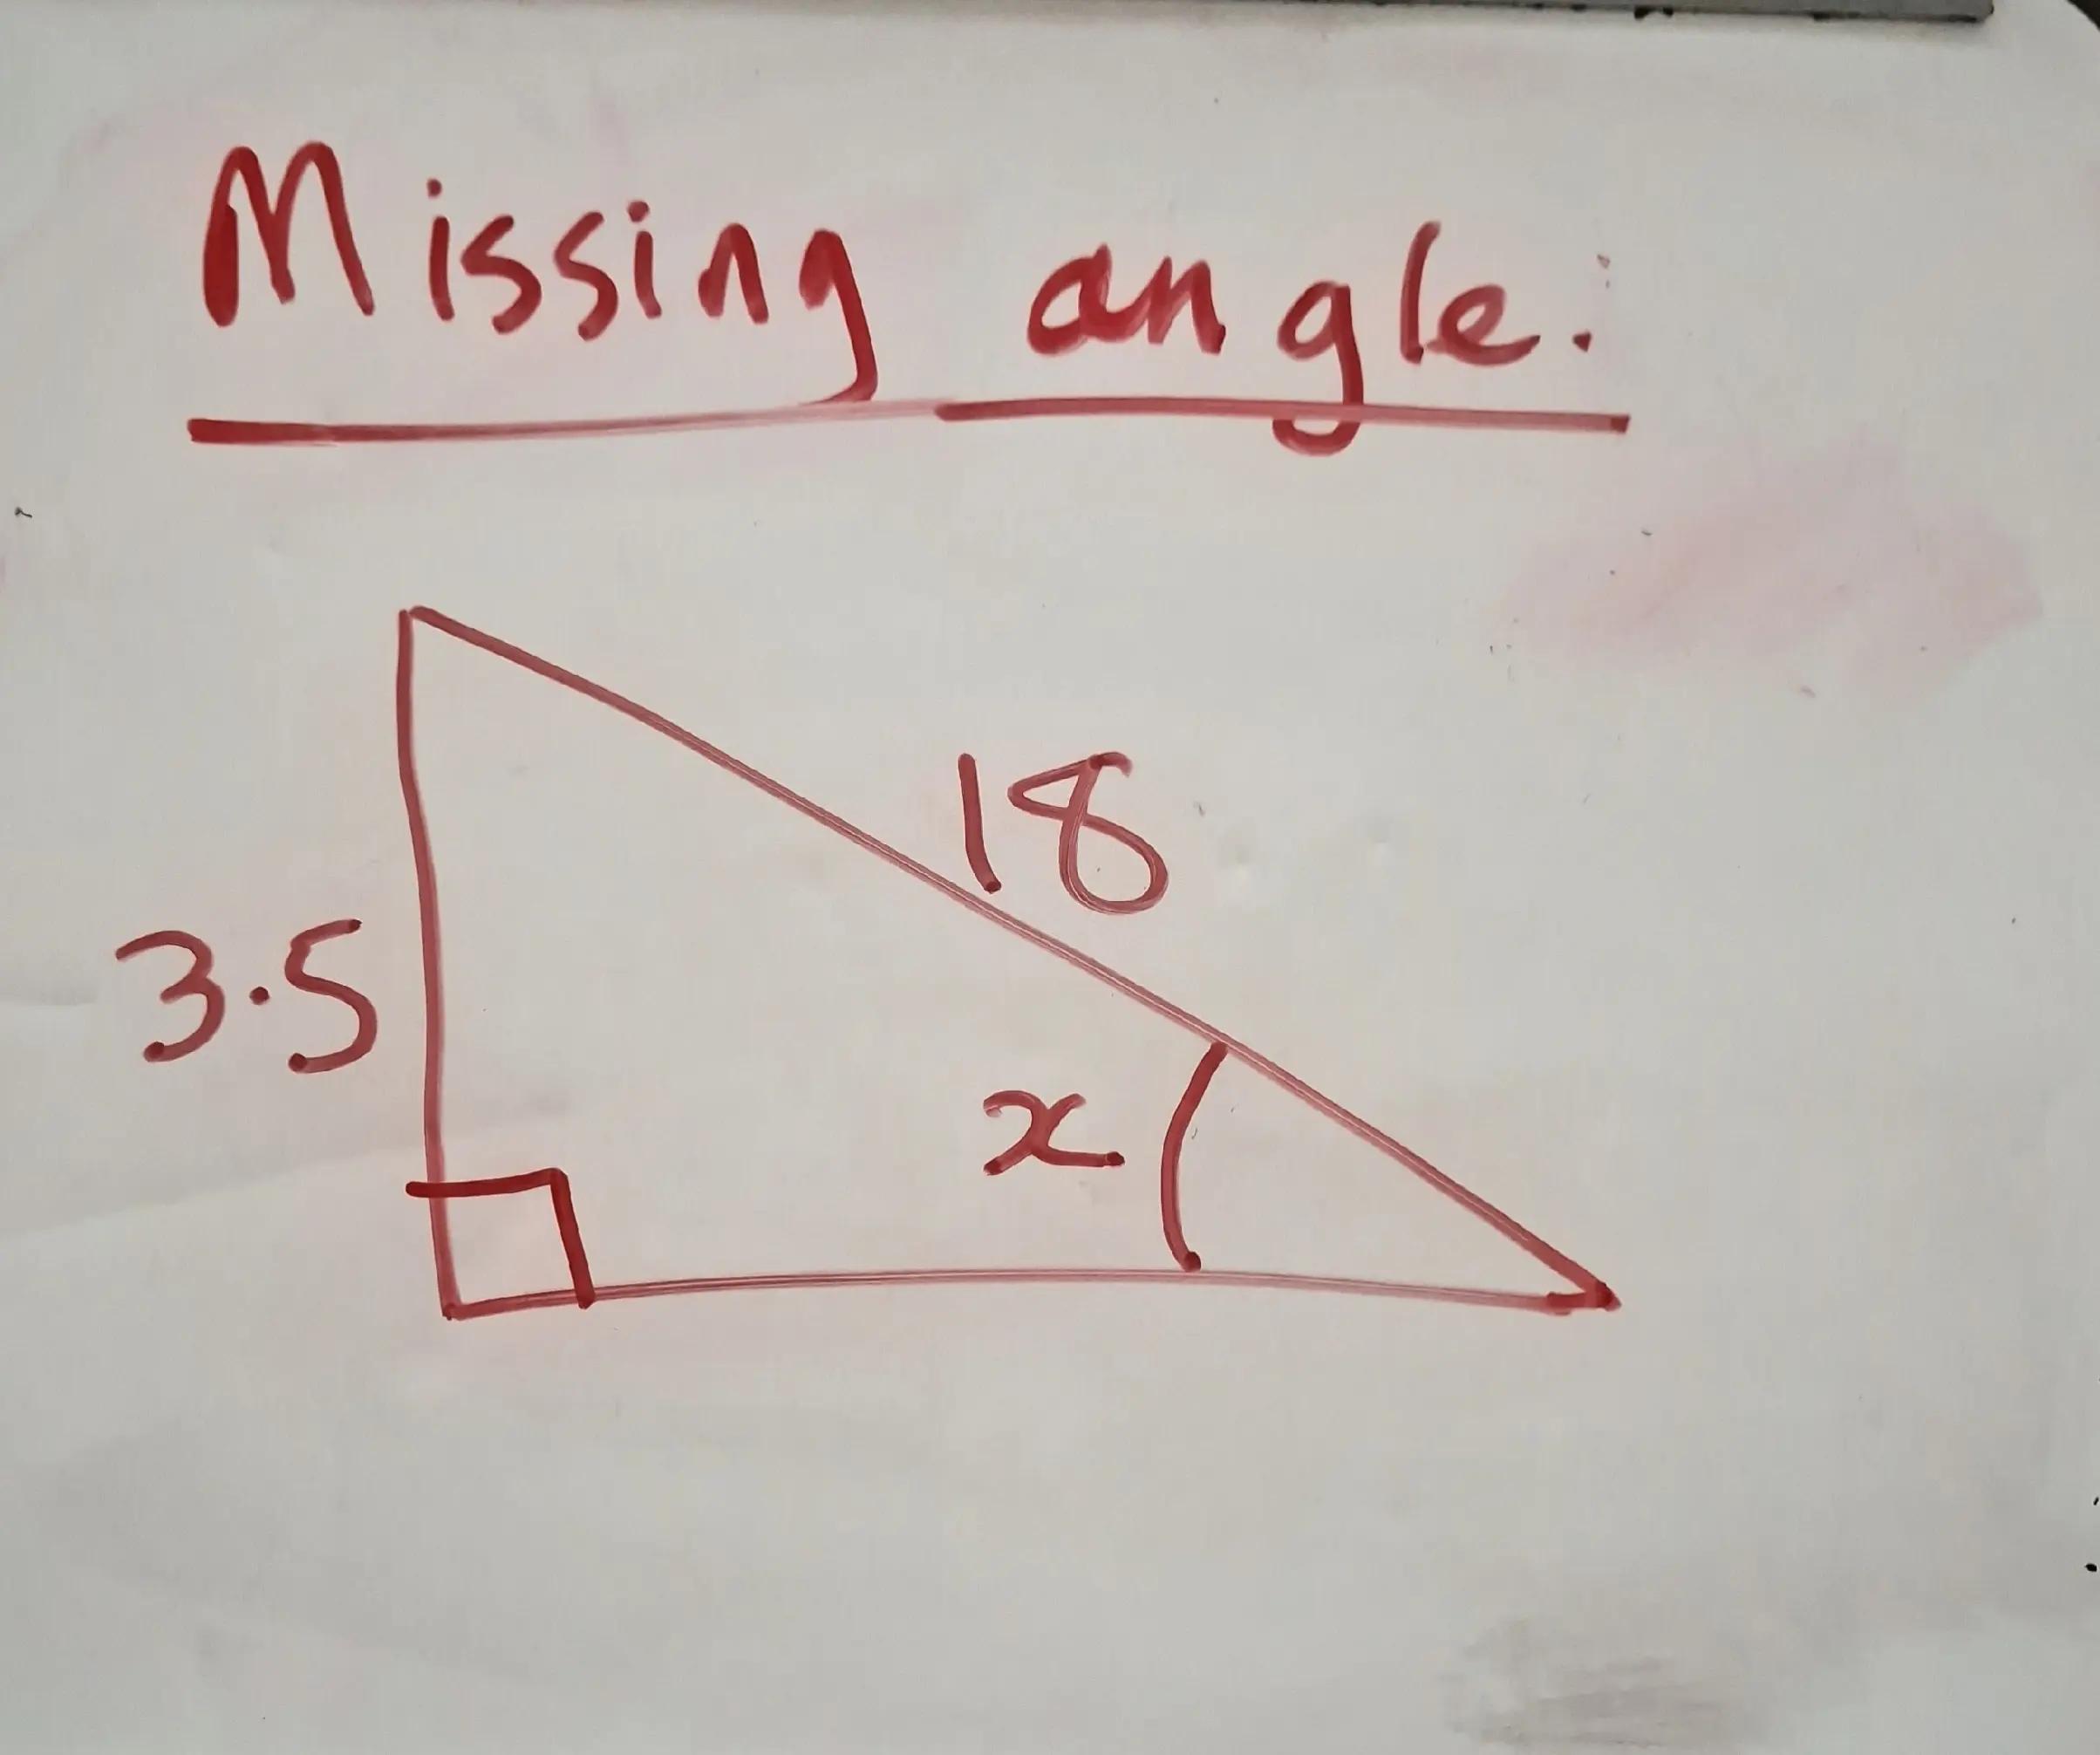 Missing angle.
18
3.5
x